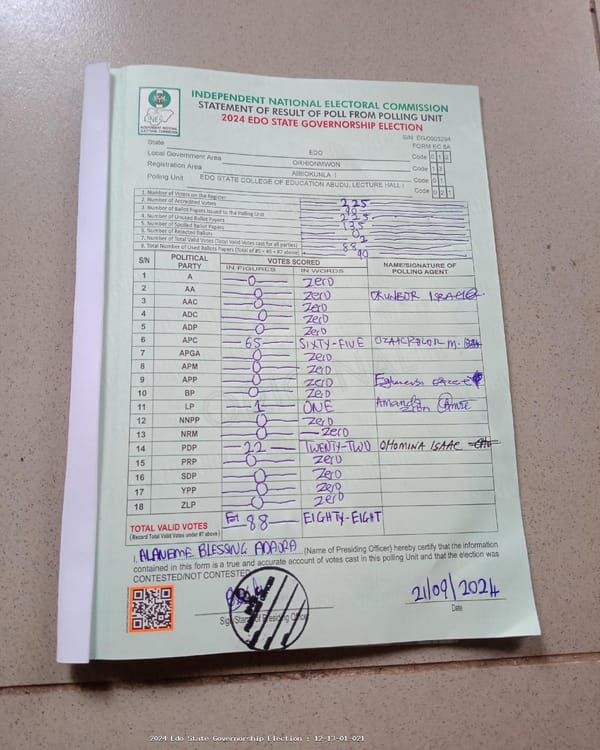 INDEPENDENT NATIONAL ELECTORAL COMMISSION
STATEMENT OF RESULT OF POLL FROM POLLING UNIT
2024 EDO STATE GOVERNORSHIP ELECTION
INEC
INDEPENDENT NATIONAL ELECTORAL COMMISSION
FORM EC 8A
State EDO Code 1 2
Local Government Area ORHIONMWON Code 1 3
Registration Area AIBIOKUNLA I Code 0 1
Polling Unit EDO STATE COLLEGE OF EDUCATION ABUDU, LECTURE HALL I Code 0 2 1
1. Number of Voters on the Register 225
2. Number of Accredited Voters 90
3. Number of Ballot Papers Issued to the Polling Unit 225
4. Number of Unused Ballot Papers 135
5. Number of Spoiled Ballot Papers 0
6. Number of Rejected Ballots 2
7. Number of Total Valid Votes (Total Valid Votes cast for all parties) 88
8. Total Number of Used Ballot Papers (Total of #5 + #6 + #7 above) 90
S/N POLITICAL PARTY VOTES SCORED NAME/SIGNATURE OF POLLING AGENT
IN FIGURES IN WORDS
1 A 0 Zero
2 AA 0 Zero
3 AAC 0 Zero
4 ADC 0 Zero
5 ADP 0 Zero
6 APC 65 SIXTY-FIVE
7 APGA 0 Zero
8 APM 0 Zero
9 APP 0 Zero
10 BP 0 Zero
11 LP 1 ONE Amanda
12 NNPP 0 Zero
13 NRM 0 Zero
14 PDP 22 TWENTY-TWO OHOMINA ISAAC
15 PRP 0 Zero
16 SDP 0 Zero
17 YPP 0 Zero
18 ZLP 0 Zero
TOTAL VALID VOTES 88 EIGHTY-EIGHT
(Record Total Valid Votes under #7 above)
I, ALANEME BLESSING ADAORA (Name of Presiding Officer) hereby certify that the information
contained in this form is a true and accurate account of votes cast in this polling Unit and that the election was
CONTESTED/NOT CONTESTED
21/09/2024
Signature of Presiding Officer Date
2024 Edo State Governorship Election : 12-13-01-021